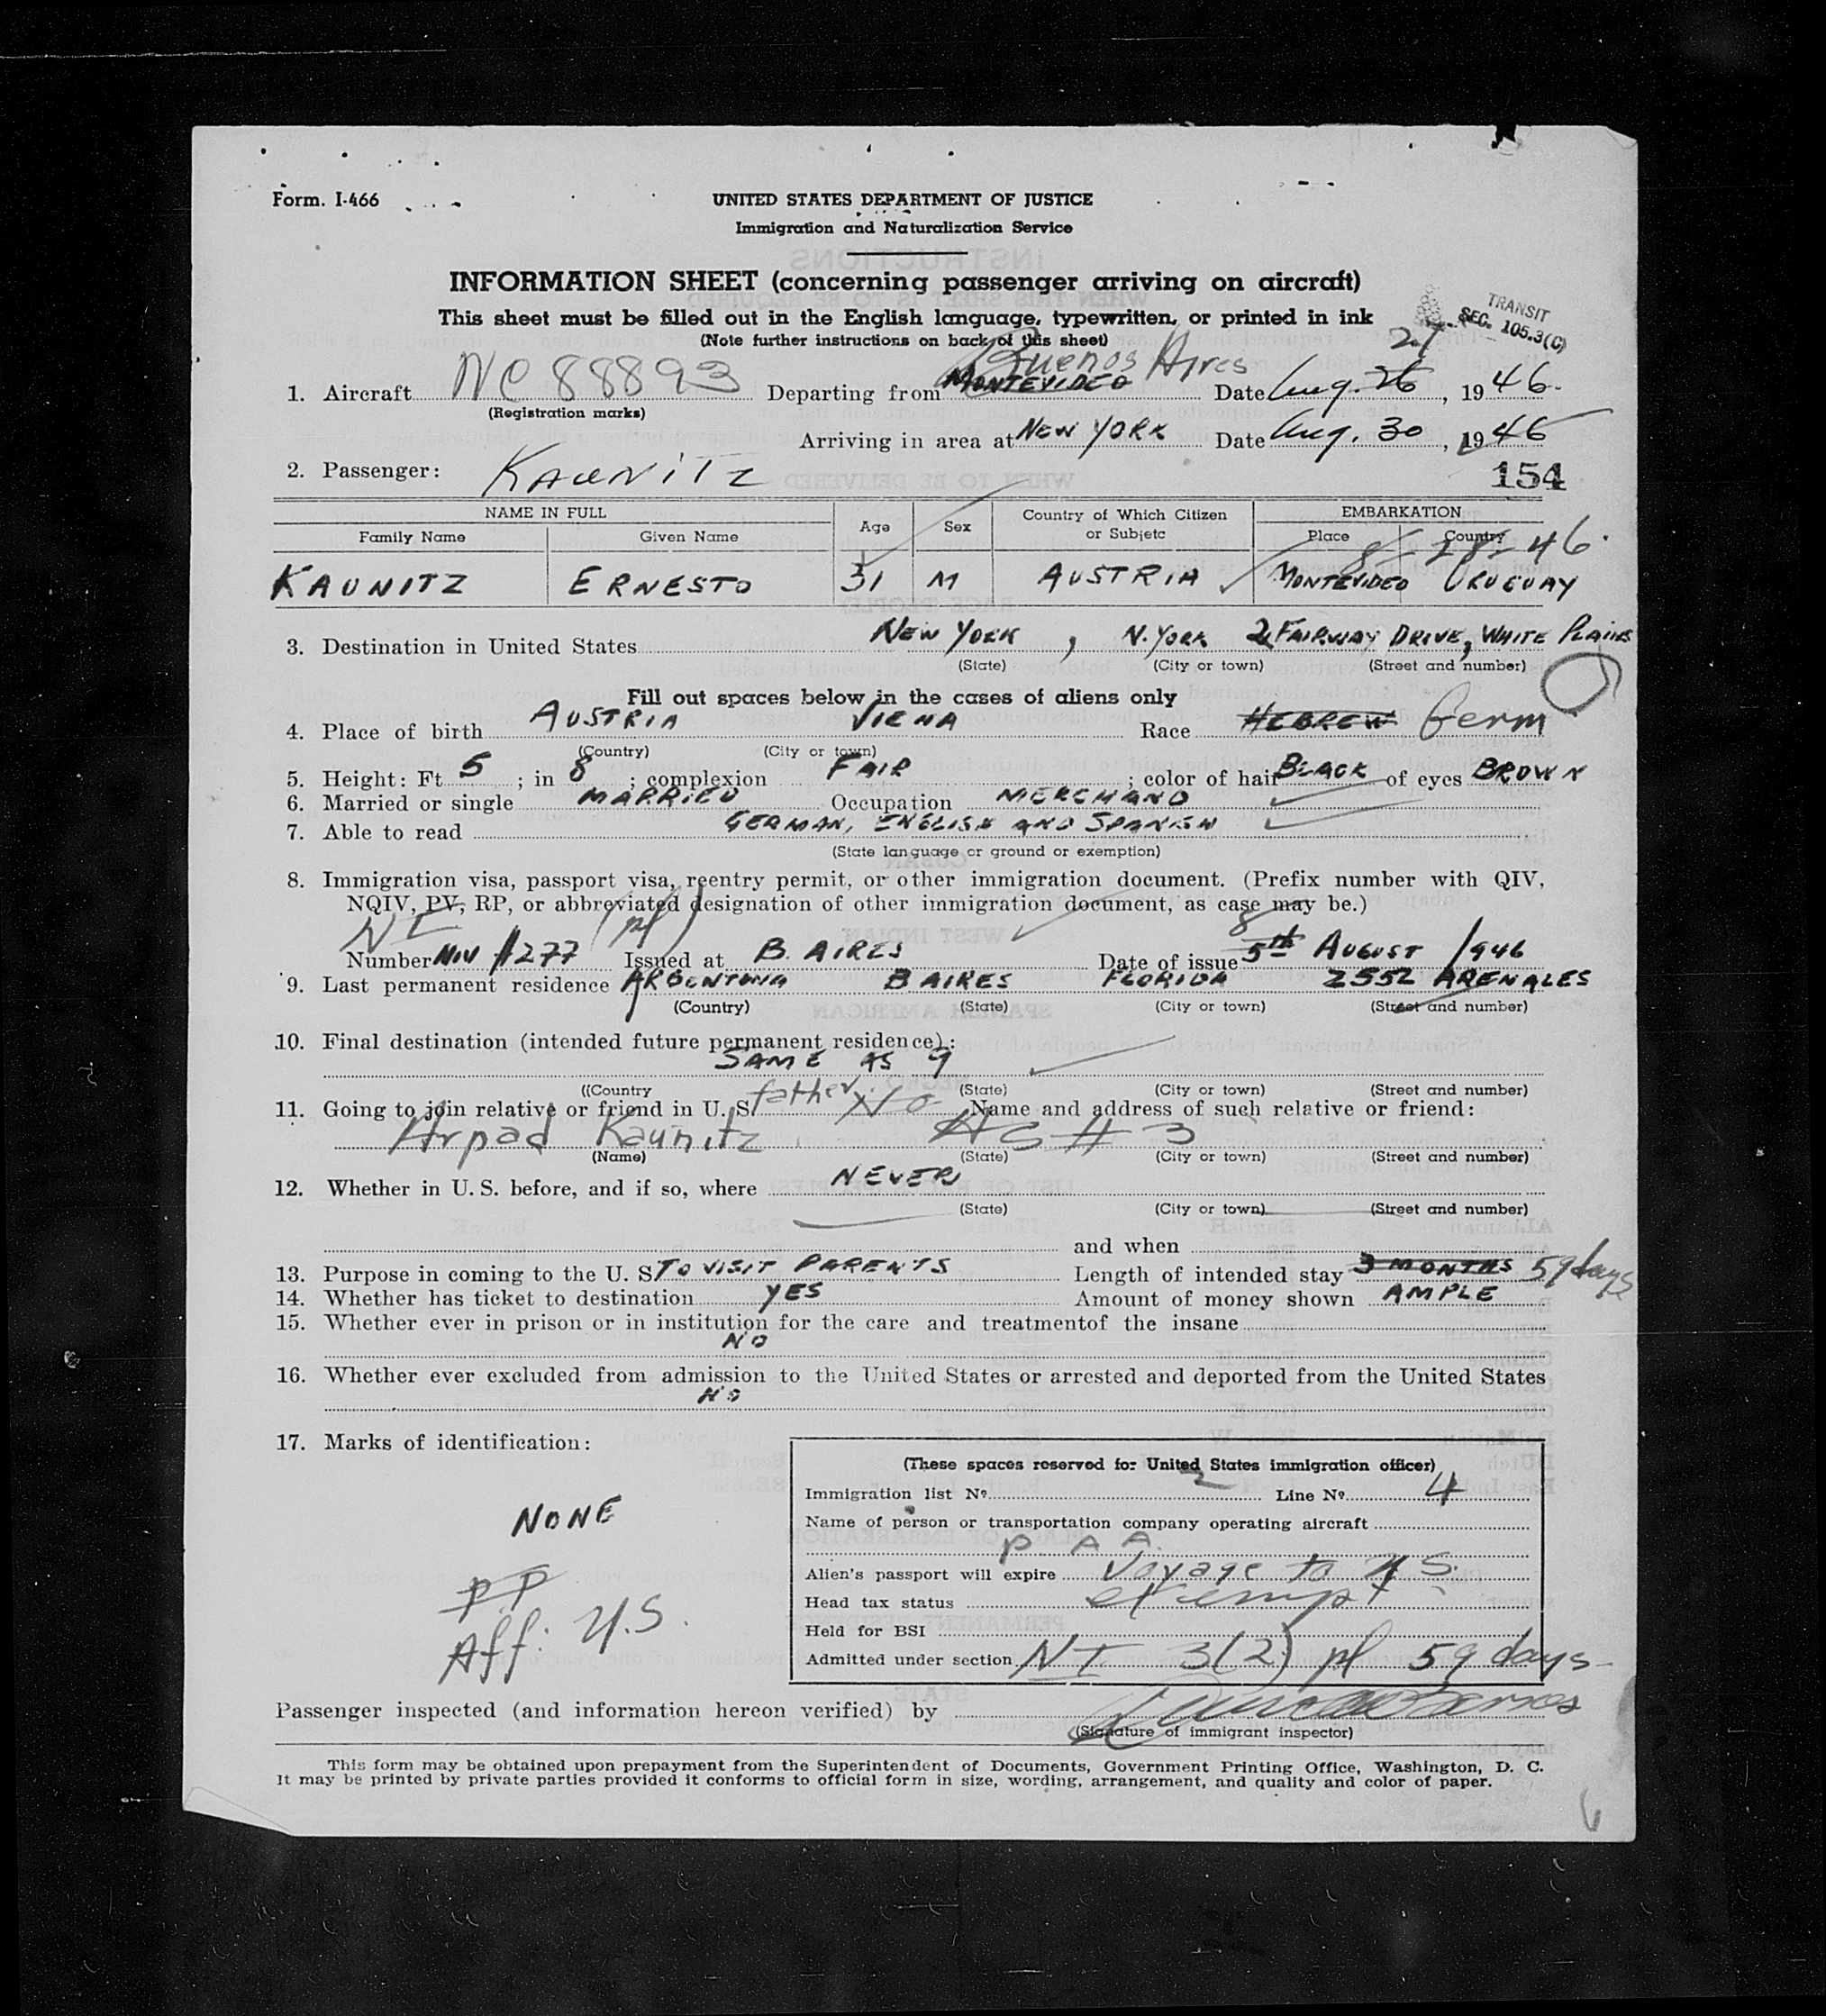 Form. I-466
UNITED STATES DEPARTMENT OF JUSTICE
Immigration and Naturalization Service
INFORMATION SHEET (concerning passenger arriving on aircraft)
This sheet must be filled out in the English language, typewritten, or printed in ink
(Note further instructions on back of this sheet)
TRANSIT
SEC. 105.3(C)
Buenos Aires 27
1. Aircraft NC 88893 Departing from MONTEVIDEO Date Aug. 26, 1946.
(Registration marks)
Arriving in area at NEW YORK Date Aug. 30, 1946
2. Passenger: KAUNITZ 154
NAME IN FULL Age Sex Country of Which Citizen or Subjetc EMBARKATION
Family Name Given Name Place Country
8-28-46.
KAUNITZ ERNESTO 31 M AUSTRIA MONTEVIDEO URUGUAY
3. Destination in United States NEW YORK, N. YORK 2 FAIRWAY DRIVE, WHITE PLAINS
(State) (City or town) (Street and number)
Fill out spaces below in the cases of aliens only
4. Place of birth AUSTRIA VIENA Race HEBREW Germ
(Country) (City or town)
5. Height: Ft 5; in 8; complexion FAIR; color of hair BLACK of eyes BROWN
6. Married or single MARRIED Occupation MERCHAND
7. Able to read GERMAN, ENGLISH AND SPANISH
(State language or ground or exemption)
8. Immigration visa, passport visa, reentry permit, or other immigration document. (Prefix number with QIV,
NQIV, PV, RP, or abbreviated designation of other immigration document, as case may be.)
NI (pl) 8
Number NIV 1277 Issued at B. AIRES Date of issue 5th AUGUST 1946
9. Last permanent residence ARGENTINA B AIRES FLORIDA 2552 ARENALES
(Country) (State) (City or town) (Street and number)
10. Final destination (intended future permanent residence):
SAME AS 9
((Country (State) (City or town) (Street and number)
11. Going to join relative or friend in U. S. father No Name and address of such relative or friend:
Arpad Kaunitz AS # 3
(Name) (State) (City or town) (Street and number)
12. Whether in U. S. before, and if so, where NEVER
(State) (City or town) (Street and number)
and when
13. Purpose in coming to the U. S. TO VISIT PARENTS Length of intended stay 3 MONTHS 59 days
14. Whether has ticket to destination YES Amount of money shown AMPLE
15. Whether ever in prison or in institution for the care and treatmentof the insane
NO
16. Whether ever excluded from admission to the United States or arrested and deported from the United States
NO
17. Marks of identification:
NONE
PP
Aff: U.S.
(These spaces reserved for United States immigration officer)
Immigration list No. 2 Line No. 4
Name of person or transportation company operating aircraft
P. A A.
Alien's passport will expire Voyage to U S.
Head tax status exempt
Held for BSI
Admitted under section NI 3(2) pl 59 days
Passenger inspected (and information hereon verified) by
(Signature of immigrant inspector)
This form may be obtained upon prepayment from the Superintendent of Documents, Government Printing Office, Washington, D. C.
It may be printed by private parties provided it conforms to official form in size, wording, arrangement, and quality and color of paper.